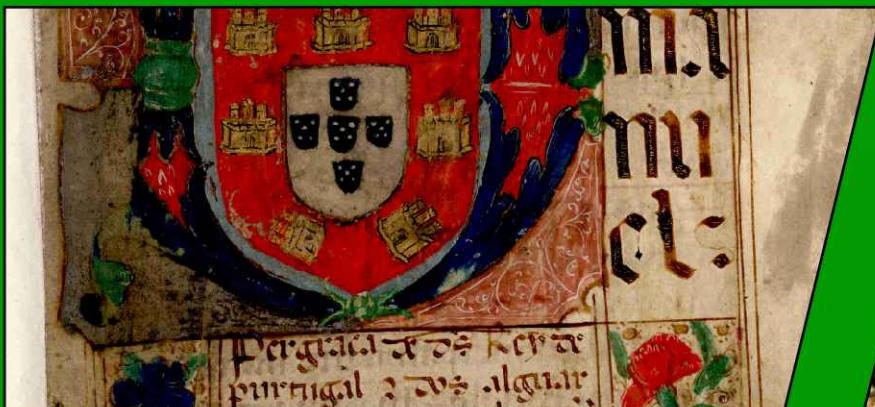 nu
el:
Per graça de ds Rey de
purtugal z dos alguar